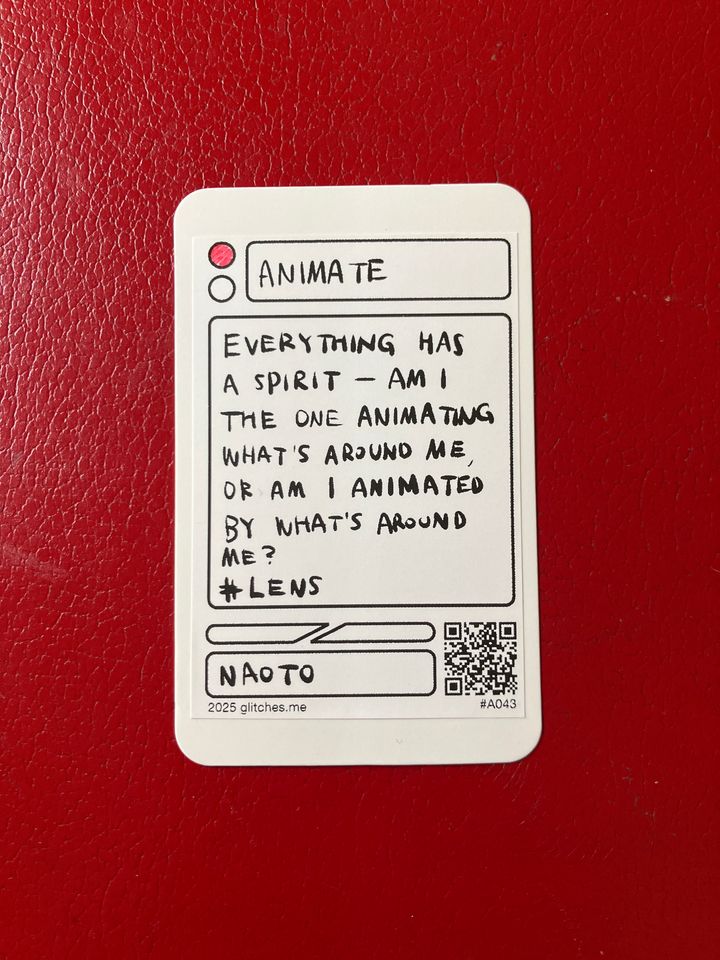 ANIMATE
EVERYTHING HAS
A SPIRIT — AM I
THE ONE ANIMATING
WHAT'S AROUND ME,
OR AM I ANIMATED
BY WHAT'S AROUND
ME?
#LENS
NAOTO
2025 glitches.me
#A043